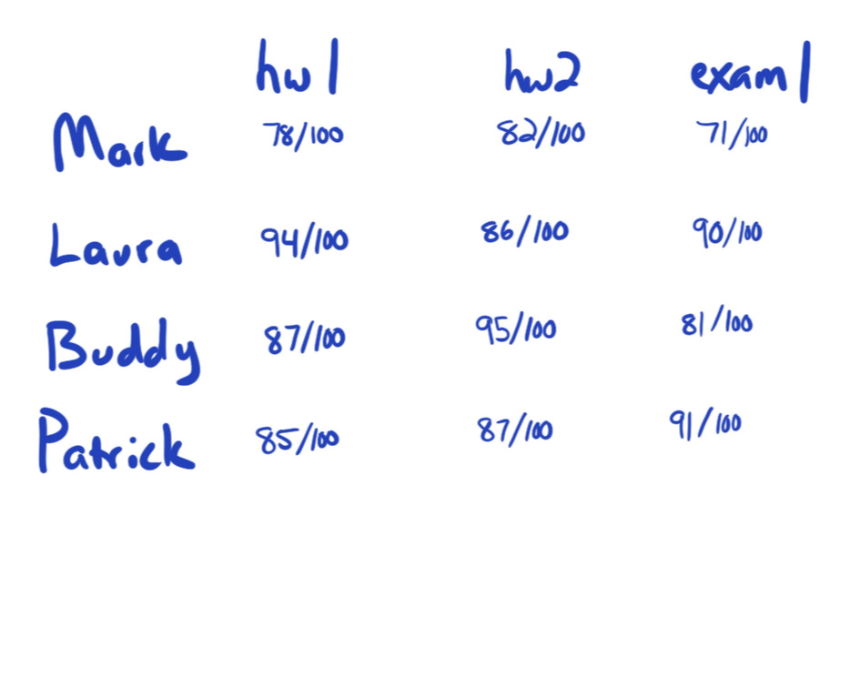 hw1 hw2 exam1
Mark 78/100 82/100 71/100
Laura 94/100 86/100 90/100
Buddy 87/100 95/100 81/100
Patrick 85/100 87/100 91/100